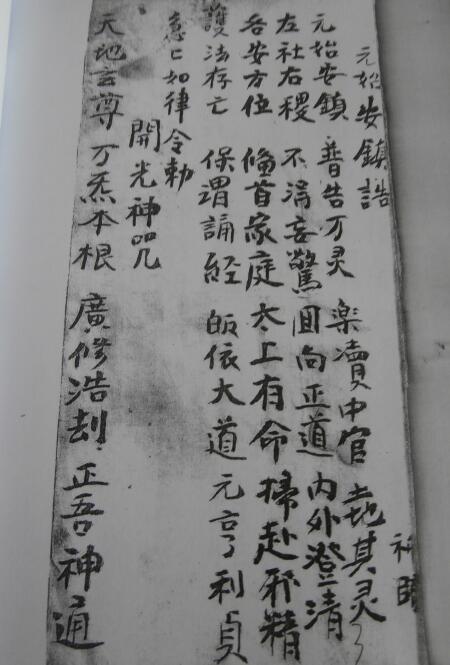 元始安鎮誥
元始安鎮 普告万灵 楽瀆中官 土地其灵
左社右稷 不淂妄驚 囬向正道 内外澄清
各安方位 俻首家庭 太上有命 掃赴邪精
護法存亡 保謂誦經 皈依大道 元亨利貞
急〻如律令勅
開光神咒
天地玄尊 万炁本根 廣修浩刼 正吾神通